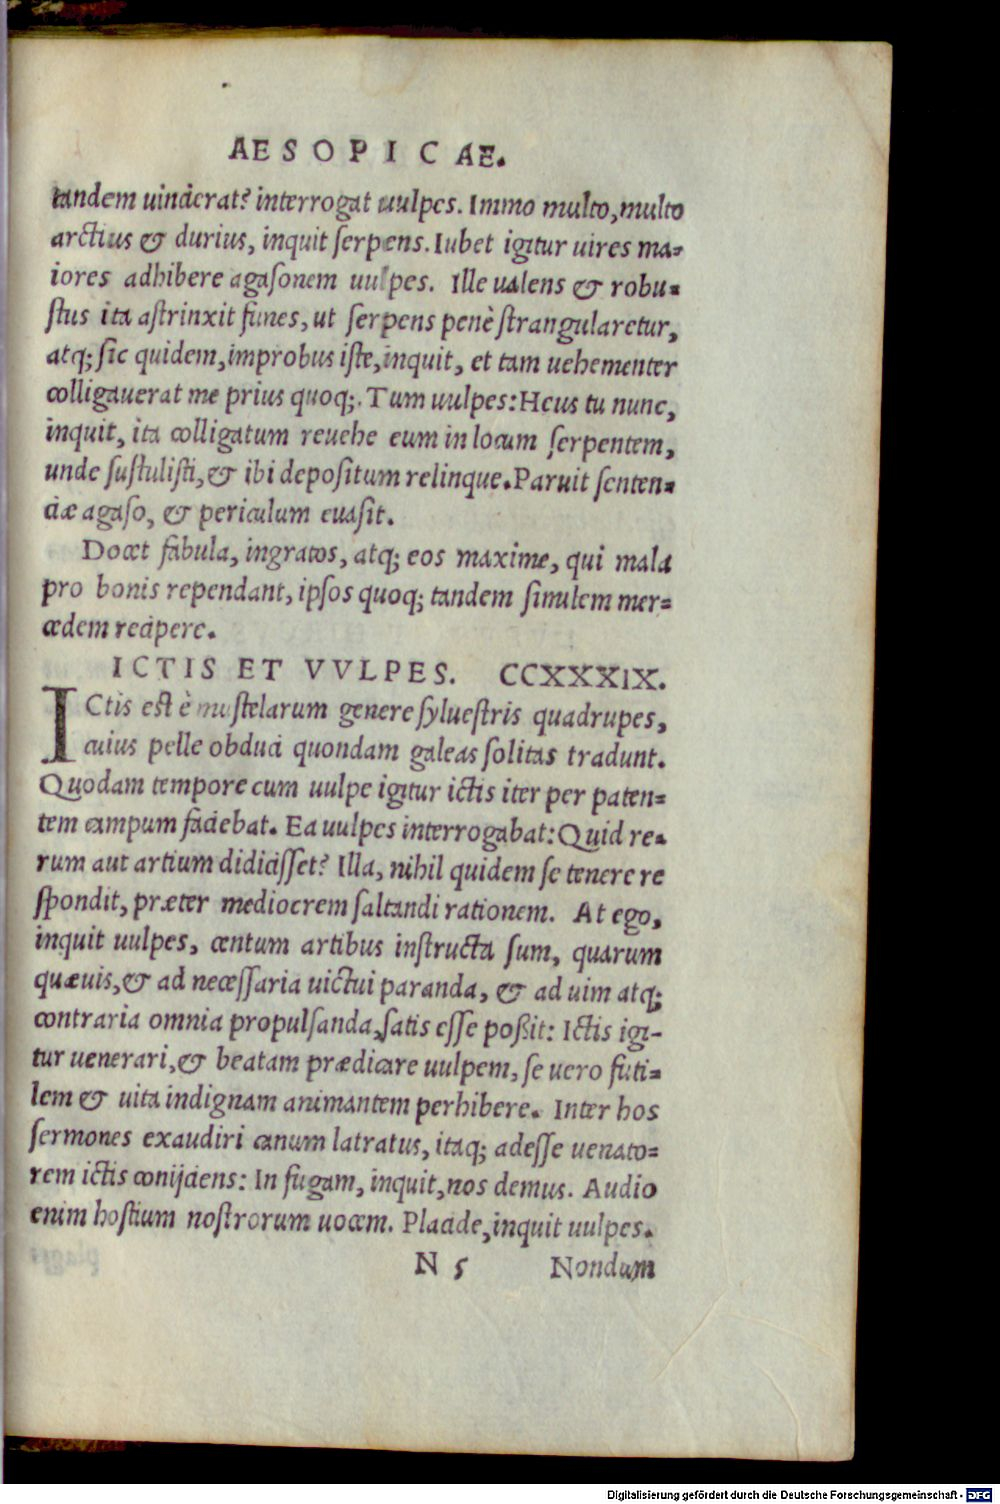 AESOPICAE.
tandem uincierat? interrogat uulpes. Immo multo, multo
arctius & durius, inquit ſerpens. Iubet igitur uires ma-
iores adhibere agaſonem uulpes. Ille ualens & robu-
ſtus ita aſtrinxit funes, ut ſerpens penè ſtrangularetur,
atq; ſic quidem, improbus iſte, inquit, et tam uehementer
colligauerat me prius quoq;. Tum uulpes: Heus tu nunc,
inquit, ita colligatum reuehe eum in locum ſerpentem,
unde ſuſtuliſti, & ibi depoſitum relinque. Paruit ſenten-
ciæ agaſo, & periculum euaſit.
Docet fabula, ingratos, atq; eos maxime, qui mala
pro bonis rependant, ipſos quoq; tandem ſimilem mer-
cedem recipere.
ICTIS ET VVLPES. CCXXXIX.
ICtis est è muſtelarum genere ſylueſtris quadrupes,
cuius pelle obduci quondam galeas ſolitas tradunt.
Quodam tempore cum uulpe igitur ictis iter per paten-
tem campum faciebat. Ea uulpes interrogabat: Quid re-
rum aut artium didiciſſet? Illa, nihil quidem ſe tenere re
ſpondit, præter mediocrem ſaltandi rationem. At ego,
inquit uulpes, centum artibus inſtructa ſum, quarum
quæuis, & ad neceſſaria uictui paranda, & ad uim atq;
contraria omnia propulſanda, ſatis eſſe poßit: Ictis igi-
tur uenerari, & beatam prædicare uulpem, ſe uero futi-
lem & uita indignam animantem perhibere. Inter hos
ſermones exaudiri canum latratus, itaq; adeſſe uenato-
rem ictis conijciens: In fugam, inquit, nos demus. Audio
enim hoſtium noſtrorum uocem. Placide, inquit uulpes.
N 5 Nondum
Digitalisierung gefördert durch die Deutsche Forschungsgemeinschaft - DFG